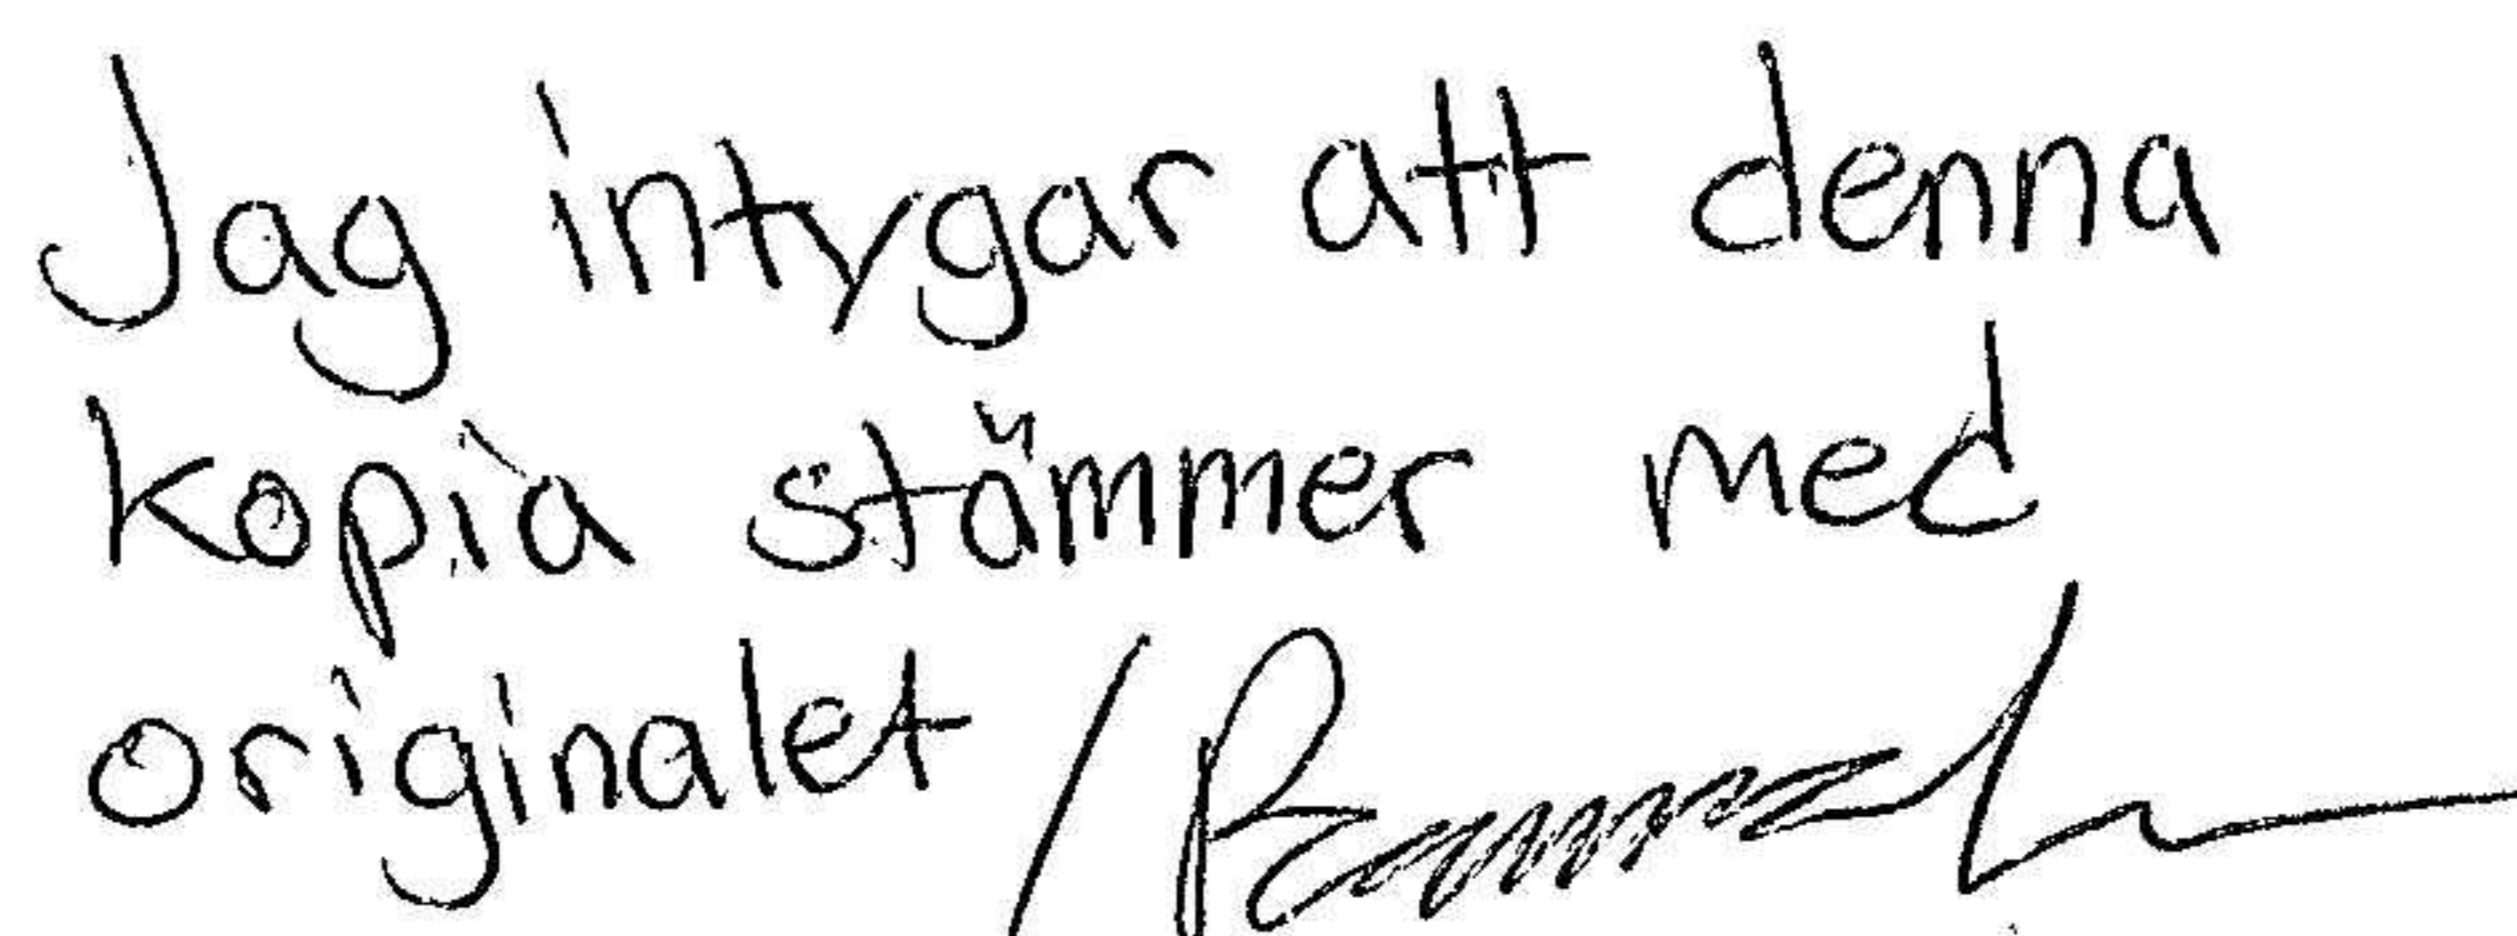 Jag intygar att denna
kopia stämmer med
originalet /